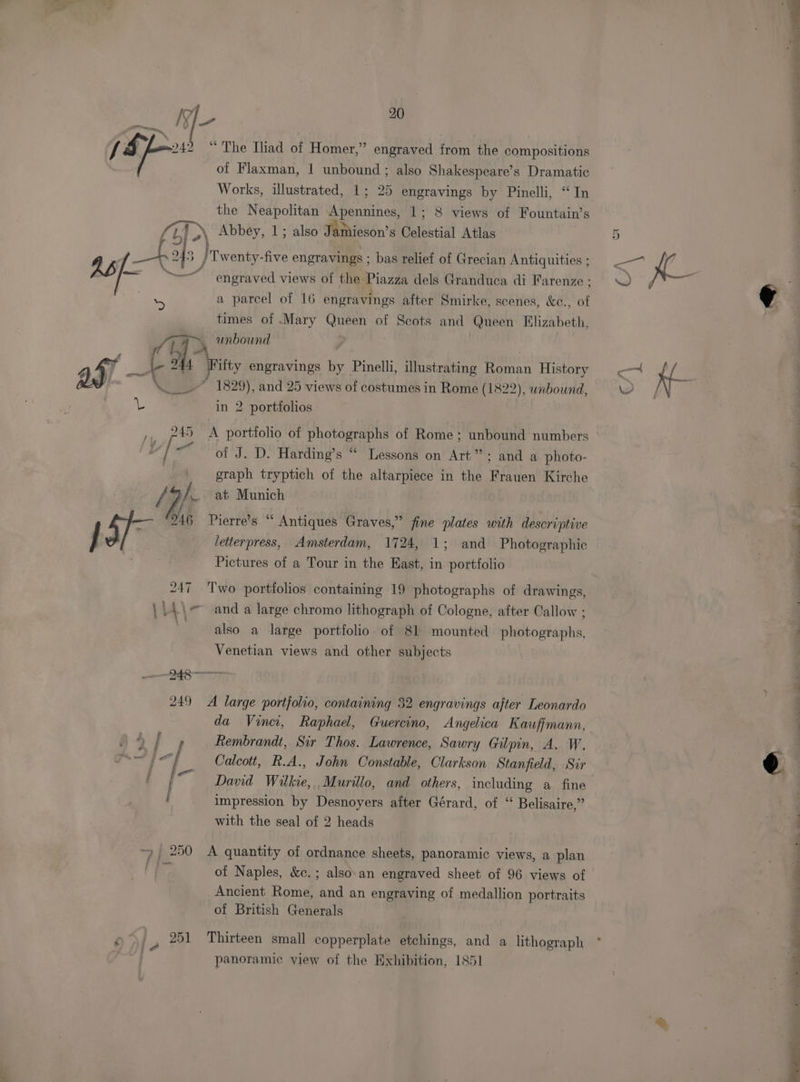 20
242 “The Iliad of Homer,” engraved from the compositions
of Flaxman, 1 unbound; also Shakespeare’s Dramatic
Works, illustrated, 1; 25 engravings by Pinelli, “In
the Neapolitan Apennines, 1; 8 views of Fountain’s
Abbey, 1; also Jamieson’s Celestial Atlas
243 Twenty-five engravings; bas relief of Grecian Antiquities;
engraved views of the Piazza dels Granduca di Farenze;
a parcel of 16 engravings after Smirke, scenes, &c., of
times of Mary Queen of Scots and Queen Elizabeth,
unbound
244 Fifty engravings by Pinelli, illustrating Roman History
1829), and 25 views of costumes in Rome (1822), unbound,
in 2 portfolios
245 A portfolio of photographs of Rome; unbound numbers
of J. D. Harding’s “ Lessons on Art”; and a photo-
graph tryptich of the altarpiece in the Frauen Kirche
at Munich
246 Pierre’s “Antiques Graves,” fine plates with descriptive
letterpress, Amsterdam, 1724, 1; and Photographic
Pictures of a Tour in the East, in portfolio
247 Two portfolios containing 19 photographs of drawings,
and a large chromo lithograph of Cologne, after Callow;
also a large portfolio of 81 mounted photographs,
Venetian views and other subjects
248
249 A large portfolio, containing 32 engravings after Leonardo
da Vinci, Raphael, Guercino, Angelica Kauffmann,
Rembrandt, Sir Thos. Lawrence, Sawry Gilpin, A. W.
Calcott, R.A., John Constable, Clarkson Stanfield, Sir
David Wilkie, Murillo, and others, including a fine
impression by Desnoyers after Gérard, of “Belisaire,”
with the seal of 2 heads
250 A quantity of ordnance sheets, panoramic views, a plan
of Naples, &c.; also an engraved sheet of 96 views of
Ancient Rome, and an engraving of medallion portraits
of British Generals
251 Thirteen small copperplate etchings, and a lithograph
panoramic view of the Exhibition, 1851